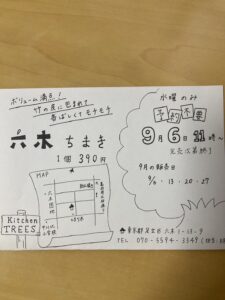 ボリューム満点!
竹の皮に包まれて
香ばしくてモチモチ
六木 ちまき
1個 390円
水曜のみ
予約不要
9月6日 11時〜
完売次第終了
9月の販売日
9/6・13・20・27
MAP
六木団地
Kitchen
TREES
東京都足立区六木1-13-9
TEL 070-5594-3349